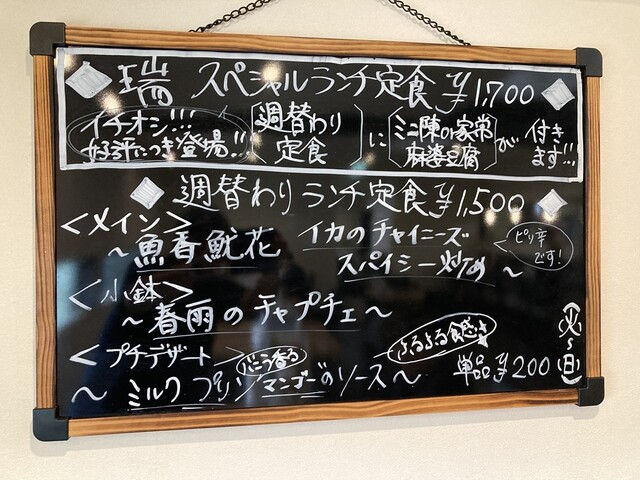 瑞 スペシャルランチ定食 ¥1,700
イチオシ!!! 好評につき登場!! 週替わり定食 に ミニ陳の家常麻婆豆腐 が 付きます!!!
週替わりランチ定食 ¥1,500
<メイン>
～魚香魷花 イカのチャイニーズ
スパイシー炒め～
ピリ辛です!
<小鉢>
～春雨のチャプチェ～
<プチデザート> バニラ香る ぷるぷる食感
～ミルクプリンマンゴーのソース～ 単品¥200
(火～日)